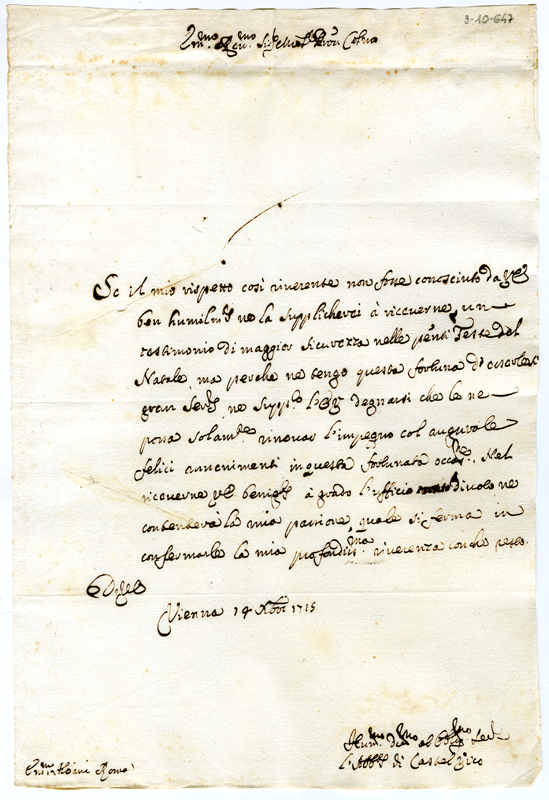 3-10-647
Em.mo Rev.mo Sig.
Se il mio rispetto così riverente non fosse conosciuto da
ben humilm.te ne la supplicherei à riceverne un
testimonio di maggior sicurezza nelle p.nti Feste del
Natale, ma perche ne tengo questa fortuna di
gran ne supp.co degnarsi che le ne
possa solam.te rinovar l'impegno col augurale
felici avvenimenti in questa fortunata occ.ne. Nel
riceverne à grado l'ufficio divoto ne
contenterà la mia passione, quale si ferma in
confermarle la mia profondiss.ma riverenza conche resto.
Vienna 14 Xbre 1715
Hum.mo
di Castel
Em.mo Albani Roma